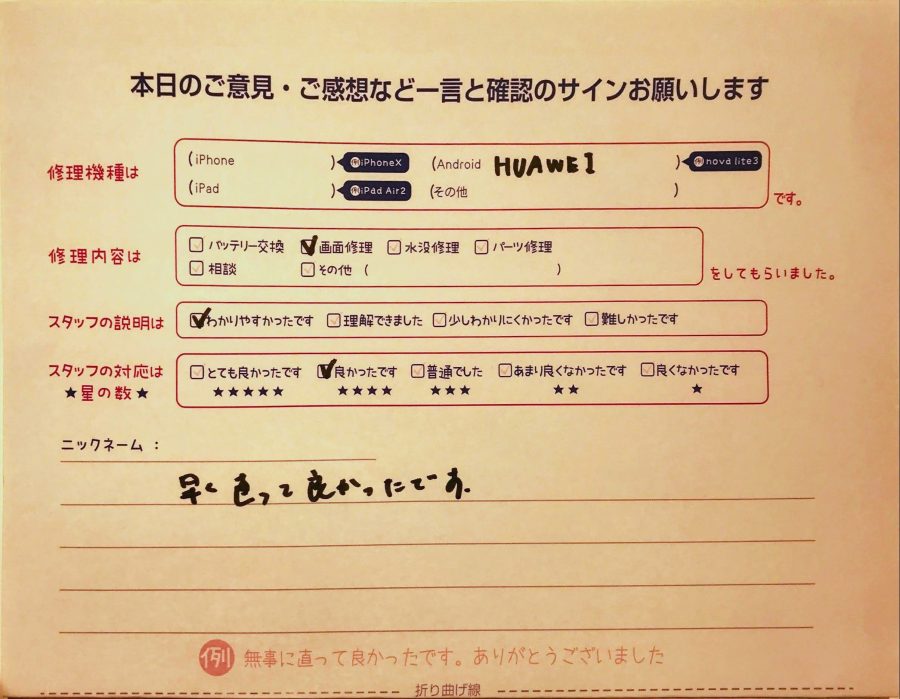 本日のご意見・ご感想など一言と確認のサインお願いします
修理機種は
(iPhone ) 例iPhoneX (Android HUAWEI ) 例nova lite3
(iPad ) 例iPad Air2 (その他 )
です。
修理内容は
バッテリー交換 画面修理 水没修理 パーツ修理
相談 その他 ( )
をしてもらいました。
スタッフの説明は
わかりやすかったです 理解できました 少しわかりにくかったです 難しかったです
スタッフの対応は
★星の数★
とても良かったです 良かったです 普通でした あまり良くなかったです 良くなかったです
★★★★★ ★★★★ ★★★ ★★ ★
ニックネーム：
早く って良かったです。
例 無事に直って良かったです。ありがとうございました
折り曲げ線